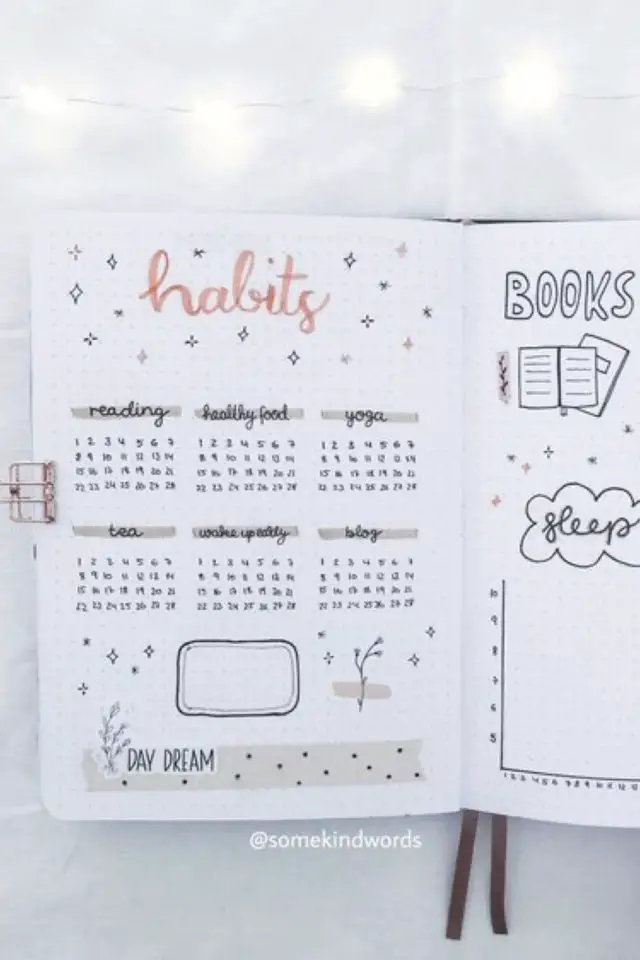 habits
reading healthy food yoga
1 2 3 4 5 6 7 1 2 3 4 5 6 7 1 2 3 4 5 6 7
8 9 10 11 12 13 14 8 9 10 11 12 13 14 8 9 10 11 12 13 14
15 16 17 18 19 20 21 15 16 17 18 19 20 21 15 16 17 18 19 20 21
22 23 24 25 26 27 28 22 23 24 25 26 27 28 22 23 24 25 26 27 28
tea wake up early blog
1 2 3 4 5 6 7 1 2 3 4 5 6 7 1 2 3 4 5 6 7
8 9 10 11 12 13 14 8 9 10 11 12 13 14 8 9 10 11 12 13 14
15 16 17 18 19 20 21 15 16 17 18 19 20 21 15 16 17 18 19 20 21
22 23 24 25 26 27 28 22 23 24 25 26 27 28 22 23 24 25 26 27 28
DAY DREAM
BOOKS
sleep
10
9
8
7
6
5
1 2 3 4 5 6 7 8 9 10 11 12
@somekindwords